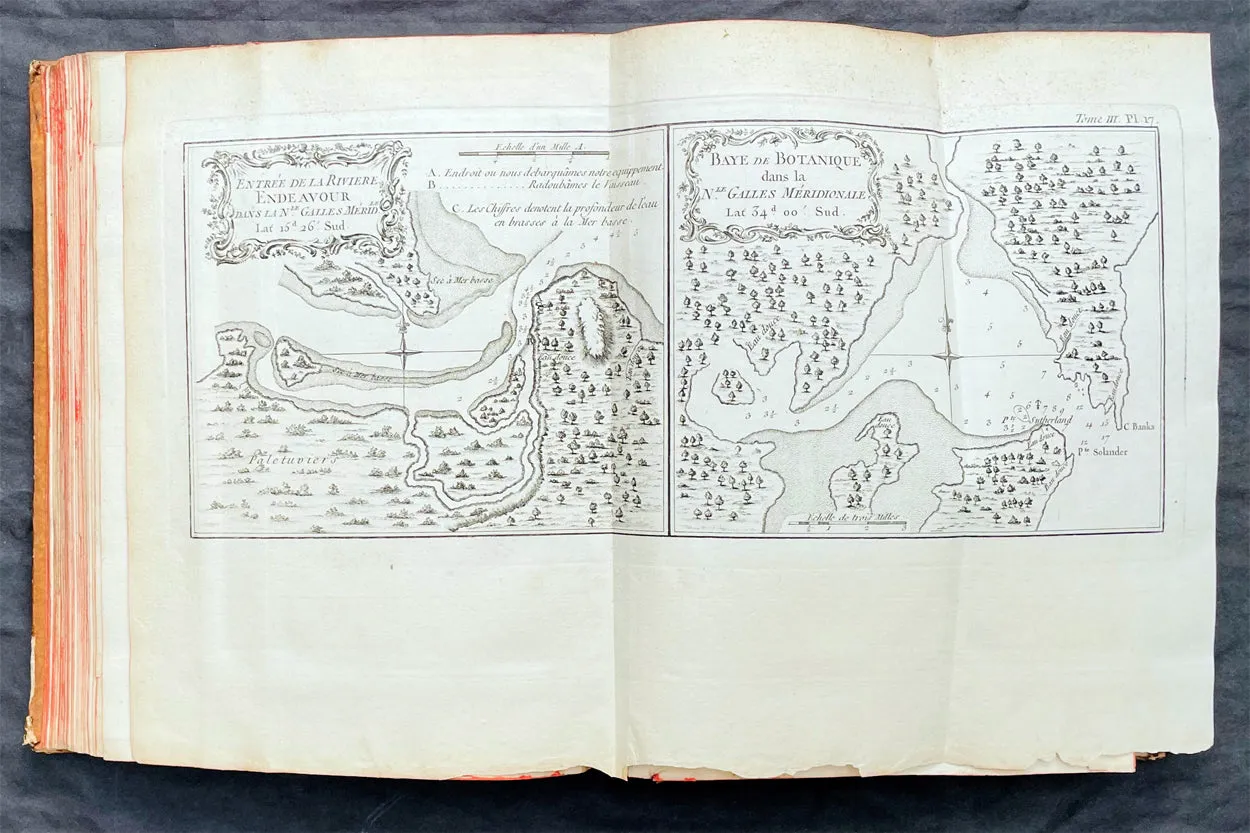 Tome III. Pl. 17.
ENTRÉE DE LA RIVIERE
ENDEAVOUR
DANS LA N.LE GALLES MÉRID.LE
Lat 15.d 26.' Sud
Echelle d'un Mille A.
A. Endroit ou nous debarquâmes notre equippement.
B . . . . . . . . . . . . Radoubâmes le Vaisseau.
C. Les Chiffres denotent la profondeur de l'eau
en brasses à la Mer basse.
Sec à Mer basse
Sec à Mer basse
Eau douce
Paletuviers
BAYE DE BOTANIQUE
dans la
N.LE GALLES MÉRIDIONALE
Lat 34.d 00.' Sud.
Eau douce
Eau douce
Eau douce
P.te Sutherland
Eau douce
C Banks
P.te Solander
Echelle de trois Milles